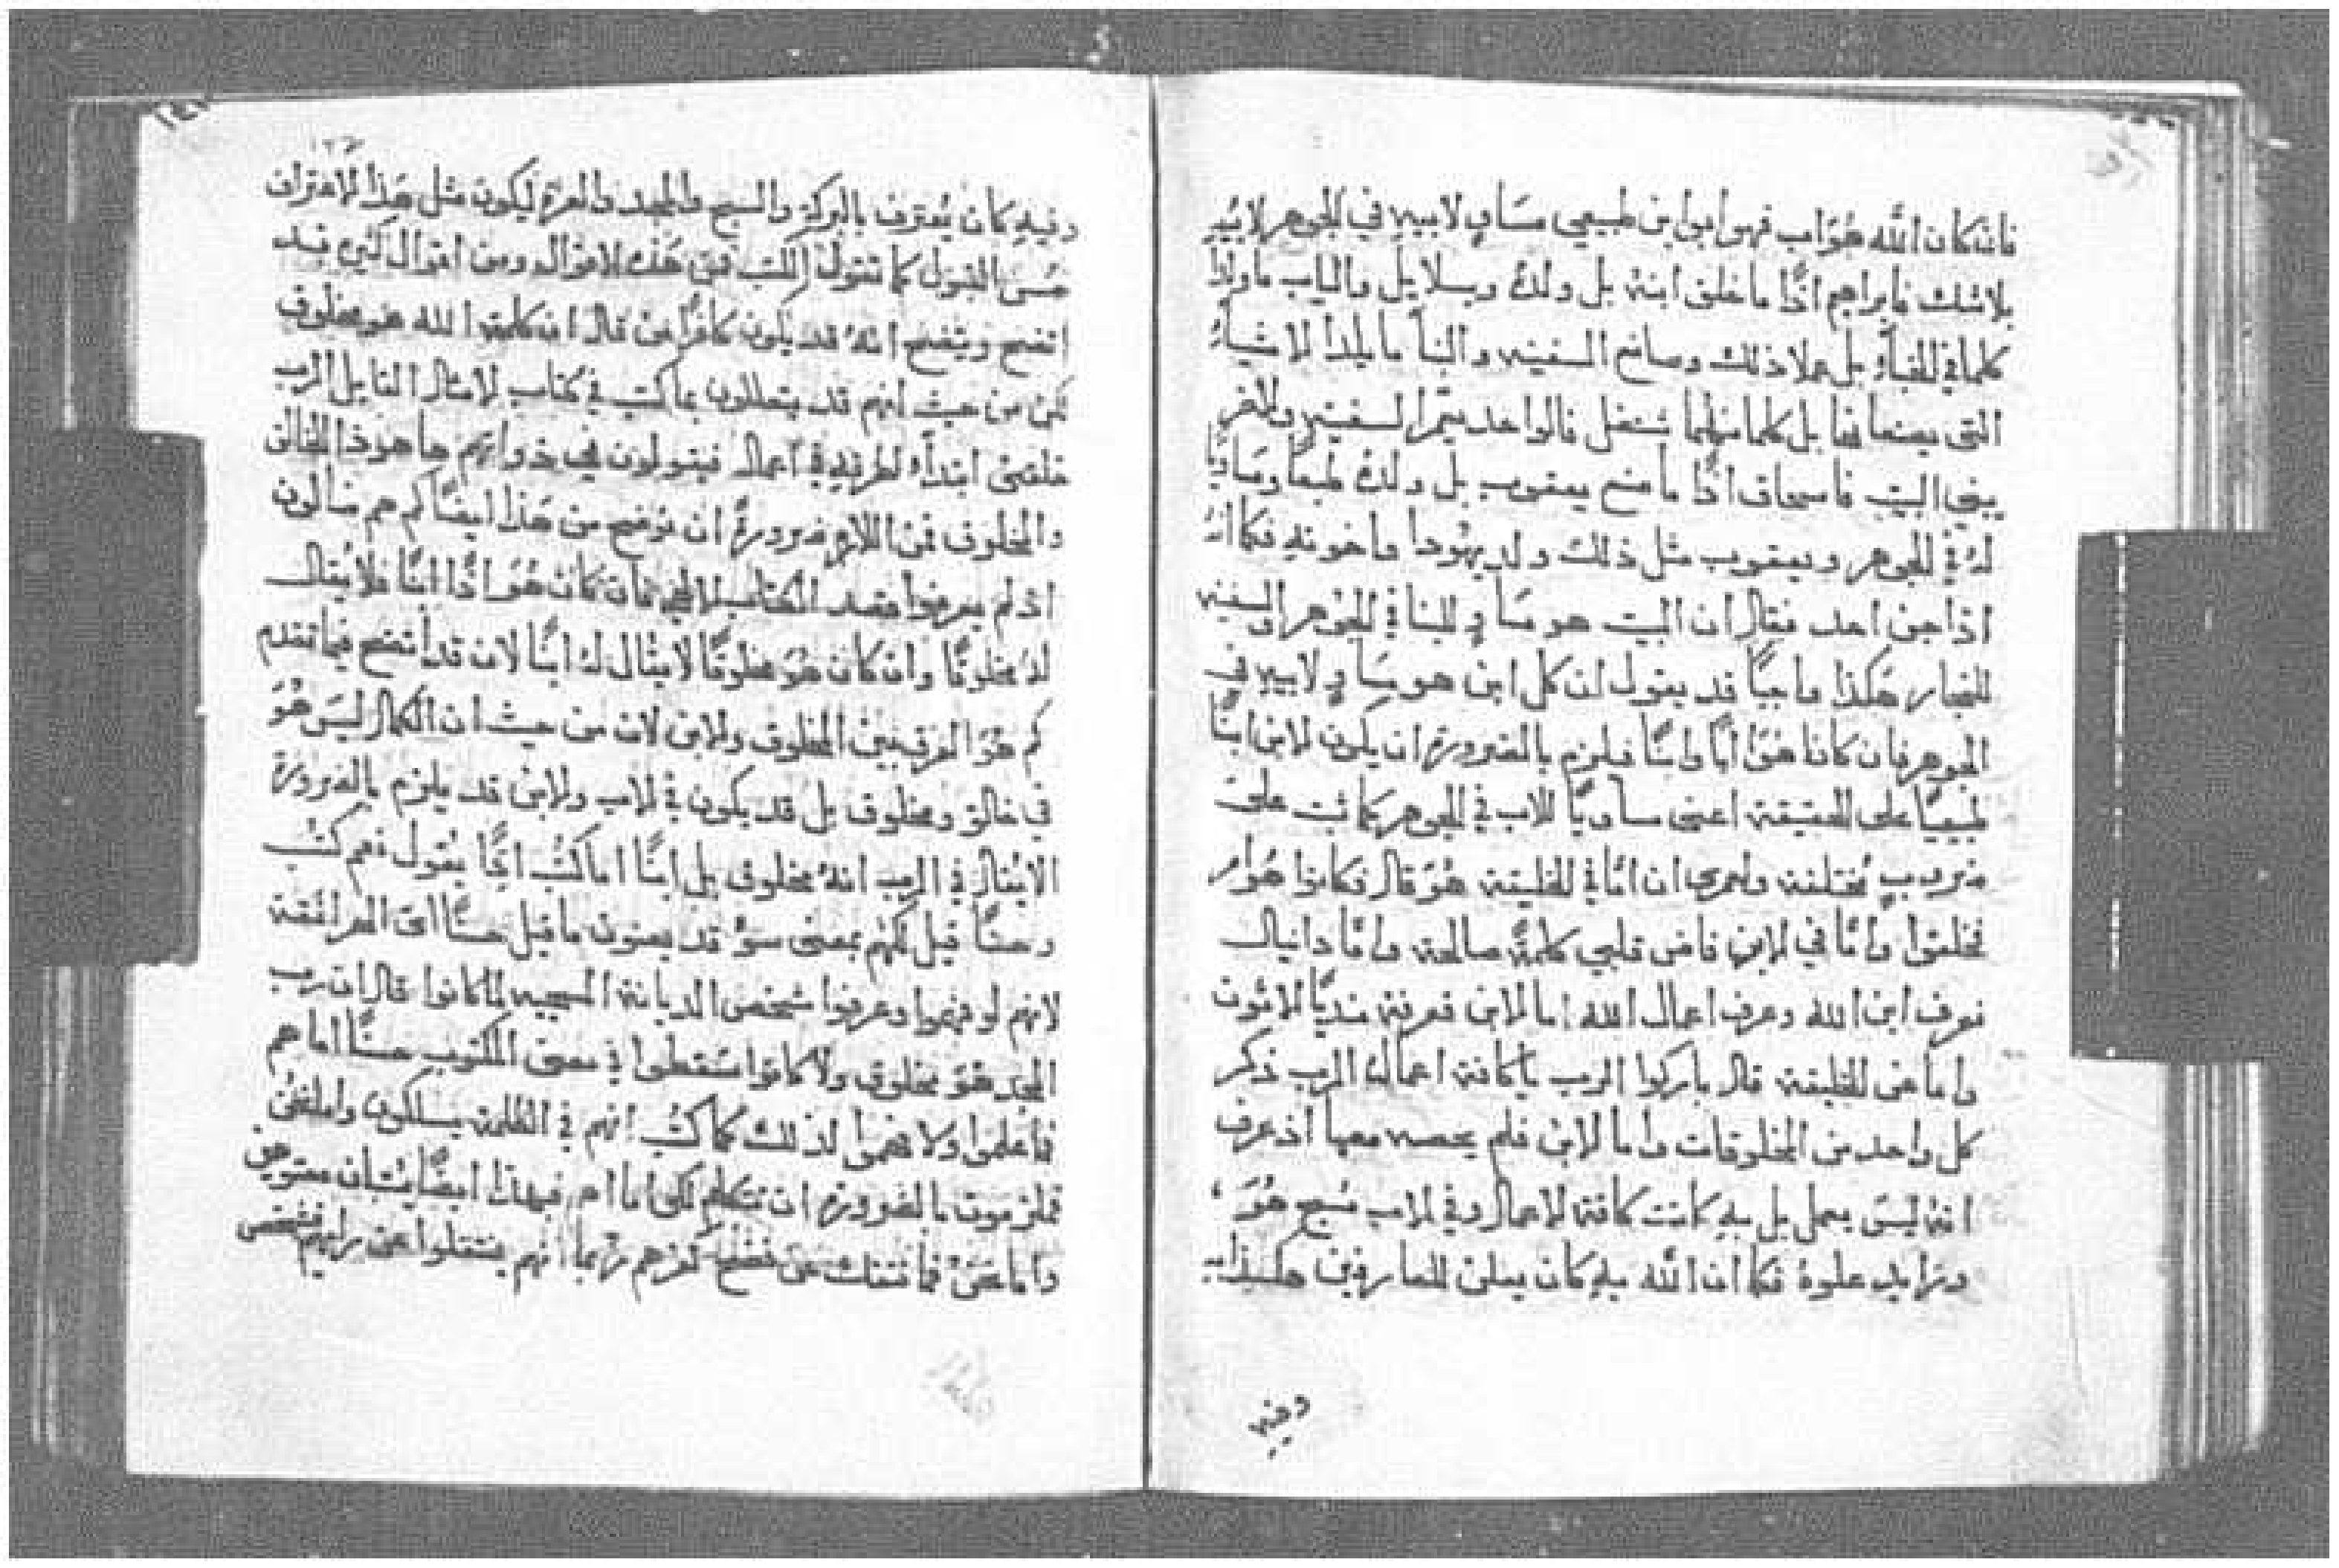 فان كان الله هو اب فهوا بوا ابن طبيعي مساوٍ لابيه في الجوهر لابيه
بلا شك فابراهيم اذًا ما خلق ابنه بل ولده وبسلاييل والياب ما ولدا
كلما في القباء بل عملا ذلك وصانع السفينه والبنا ما يلدا الاشياء
التى يصنعانها بل كلما منهما شتغل فالواحد يتمم السفينه والاخر
يبنى البيت فاسحاق اذًا ما صنع يعقوب بل ولده طبعًا ومساويًا
له في الجوهر ويعقوب مثل ذلك ولد يهودا واخوته فكما انه
اذا جن احد فقال ان البيت هو مساوٍ للبنا في الجوهر والسفينه
للنجار هكذا واجبًا قد يقول ان كل ابن هو مساوٍ لابيه في
الجوهر فان كانا هوا ابًا وابنًا فيلزم بالضروره ان يكون الابن ابنًا
طبيعيًا على الحقيقة اعنى مساويًا للاب في الجوهر كما ثبت على
ضروبٍ مختلفة ولعمرى ان اما في الخليقة هو قال فكانوا هو امر
فخلقوا واما في الابن فاض قلبي كلمةً صالحة واما دانيال
نعرف ابن الله وعرف اعمال الله اما الابن فعرفه منديًا الاتون
واما عن الخليقة قال باركوا الرب يا كافة اعمال الرب ذكر
كل واحد من المخلوقات واما الابن فلم يحصه معها اذ عرف
انه ليس يعمل بل به كانت كافة الاعمال وفي الاب مسبح هو
ومزايد علوه فكما ان الله به كان يعلن للعارفين هكذا
وفيه
وفيه كان يُعترف بالبركة والسبح والمجد والعزة ليكون مثل هذا الاعتراف
حسن القبول كما تقول الكتب فمن هذه الاقوال ومن اقوال كثيره قد
اتضح ويتضح انه قد يكون كافرًا من قال ان كلمة الله هو مخلوق
لكن من حيث انهم قد يتعللون بما كتب في كتاب الامثال القايل الرب
خلقنى ابتداء لطرقه في اعماله فيقولون في ذواتهم ها هوذا الخالق
والمخلوق فمن اللازم ضرورةً ان نوضح من هذا ايضًا كم هم ضالون
اذ لم يعرفوا مقصد الكتاب الالهي فان كان هو اذًا ابنًا فلا يُقال
له مخلوقًا وان كان هو مخلوقًا لا يقال له ابنًا لان قد اتضح فيما تقدم
كم هو الفرق بين المخلوق والابن لان من حيث ان الكمال ليس هو
في خالق ومخلوق بل قد يكون في الاب والابن قد يلزم بالضرورة
الا يُقال في الرب انه مخلوق بل ابنًا اما كُتب انما يقول نعم كُتب
وحسنًا قيل لكنهم بمعنى سوء قد يعنون ما قيل حسنًا اى الهراتقة
لانهم لو فهموا وعرفوا شخص الديانة المسيحيه لما كانوا قالوا ان رب
المجد هو مخلوق ولا كانوا سقطوا في معنى المكتوب حسنًا اما هم
فما علموا ولا فهموا لذلك كما كُتب انهم في الظلمة يسلكون واما نحن
فملزمون بالضرورة ان نتكلم لكى اما هم فبهذا ايضًا
واما نحن فما ننفك عن فضح كفرهم ربما انهم ينتقلوا عن رايهم فشخص